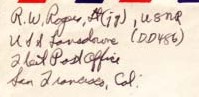 R.W. Rogers, Lt(jg), USNR
USS Lansdowne (DD486)
Fleet Post Office
San Francisco, Cal.